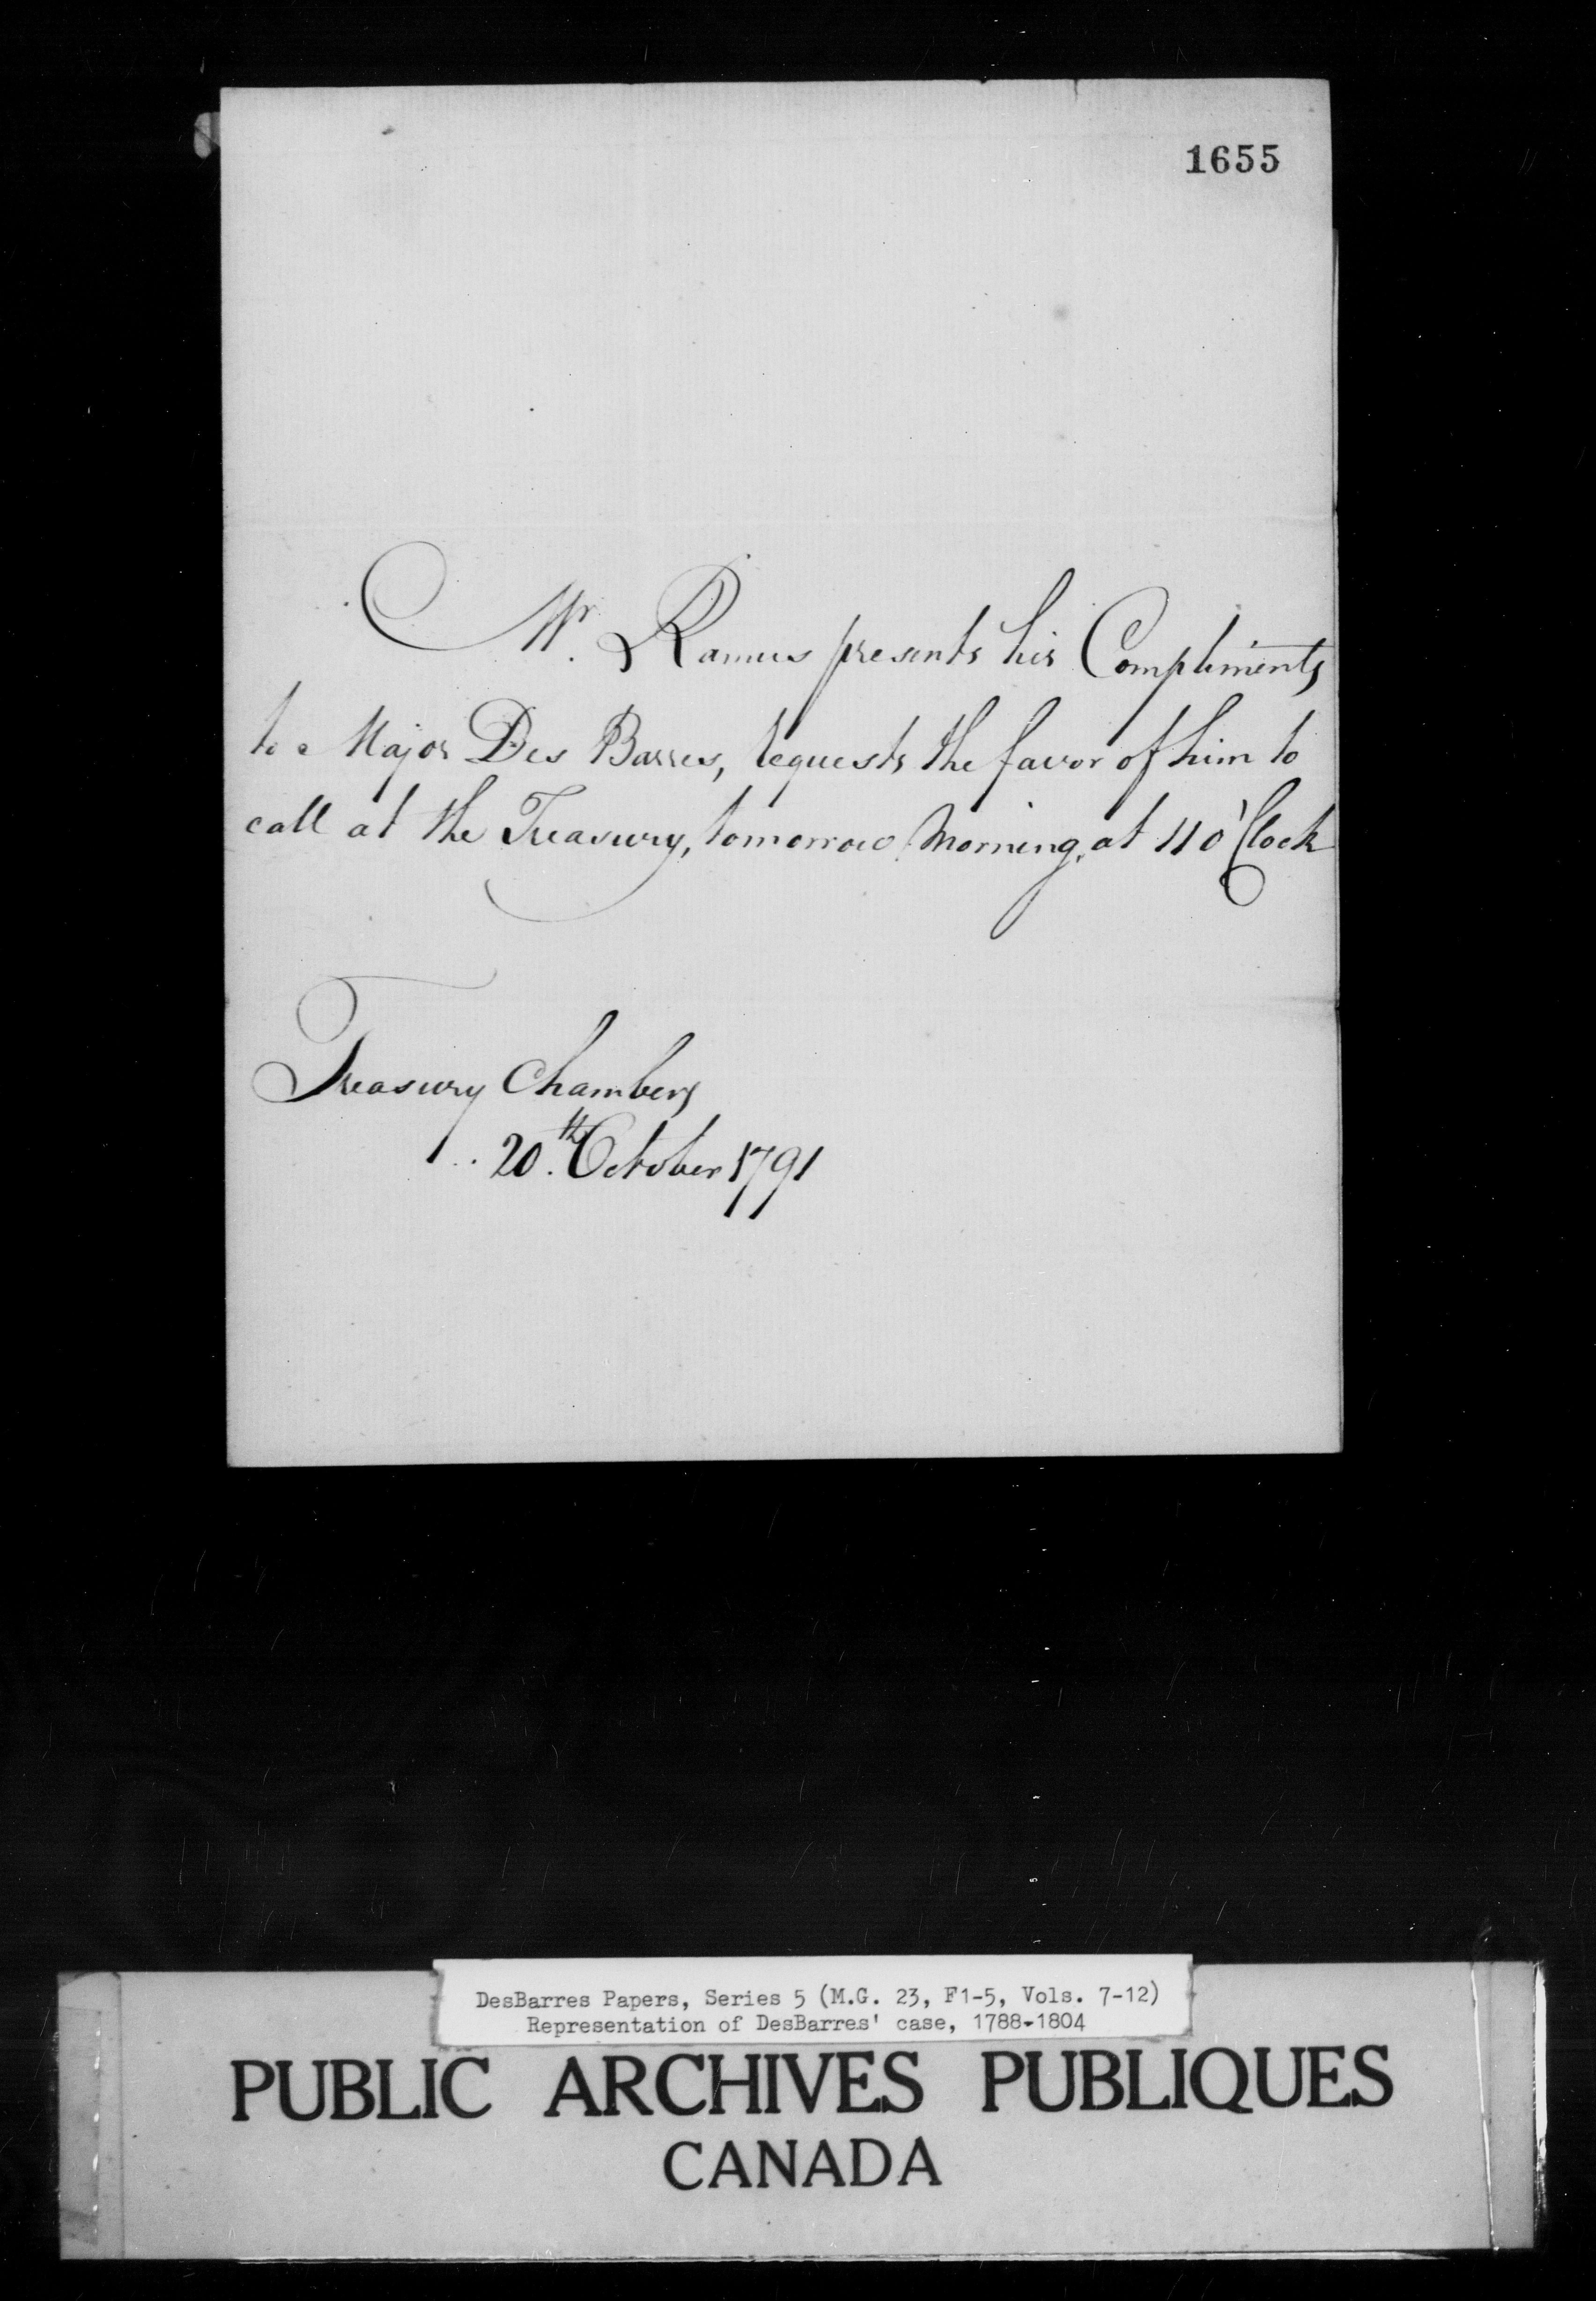 1655
Mr. Ramus presents his Compliments
to Major Des Barres, requests the favor of him to
call at the Treasury, tomorrow Morning, at 11 o'Clock
Treasury Chambers
20th October 1791
DesBarres Papers, Series 5 (M.G. 23, F1-5, Vols. 7-12)
Representation of DesBarres' case, 1788-1804
PUBLIC ARCHIVES PUBLIQUES
CANADA